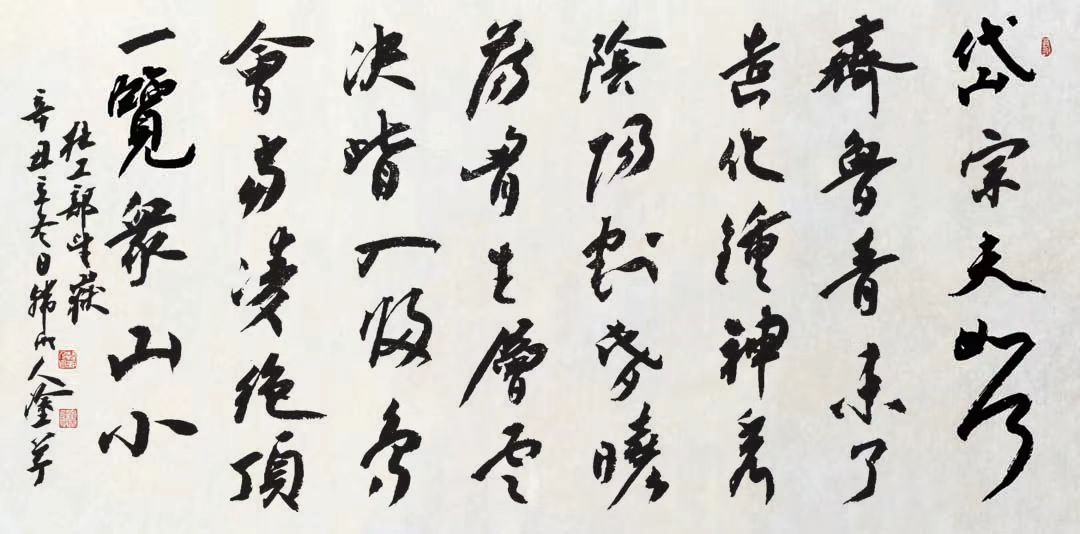 岱宗夫如何
齊魯青未了
造化鍾神秀
陰陽割昏曉
蕩胷生層雲
決眥入歸鳥
會當凌絕頂
一覽眾山小
杜工部望嶽
辛丑立冬日